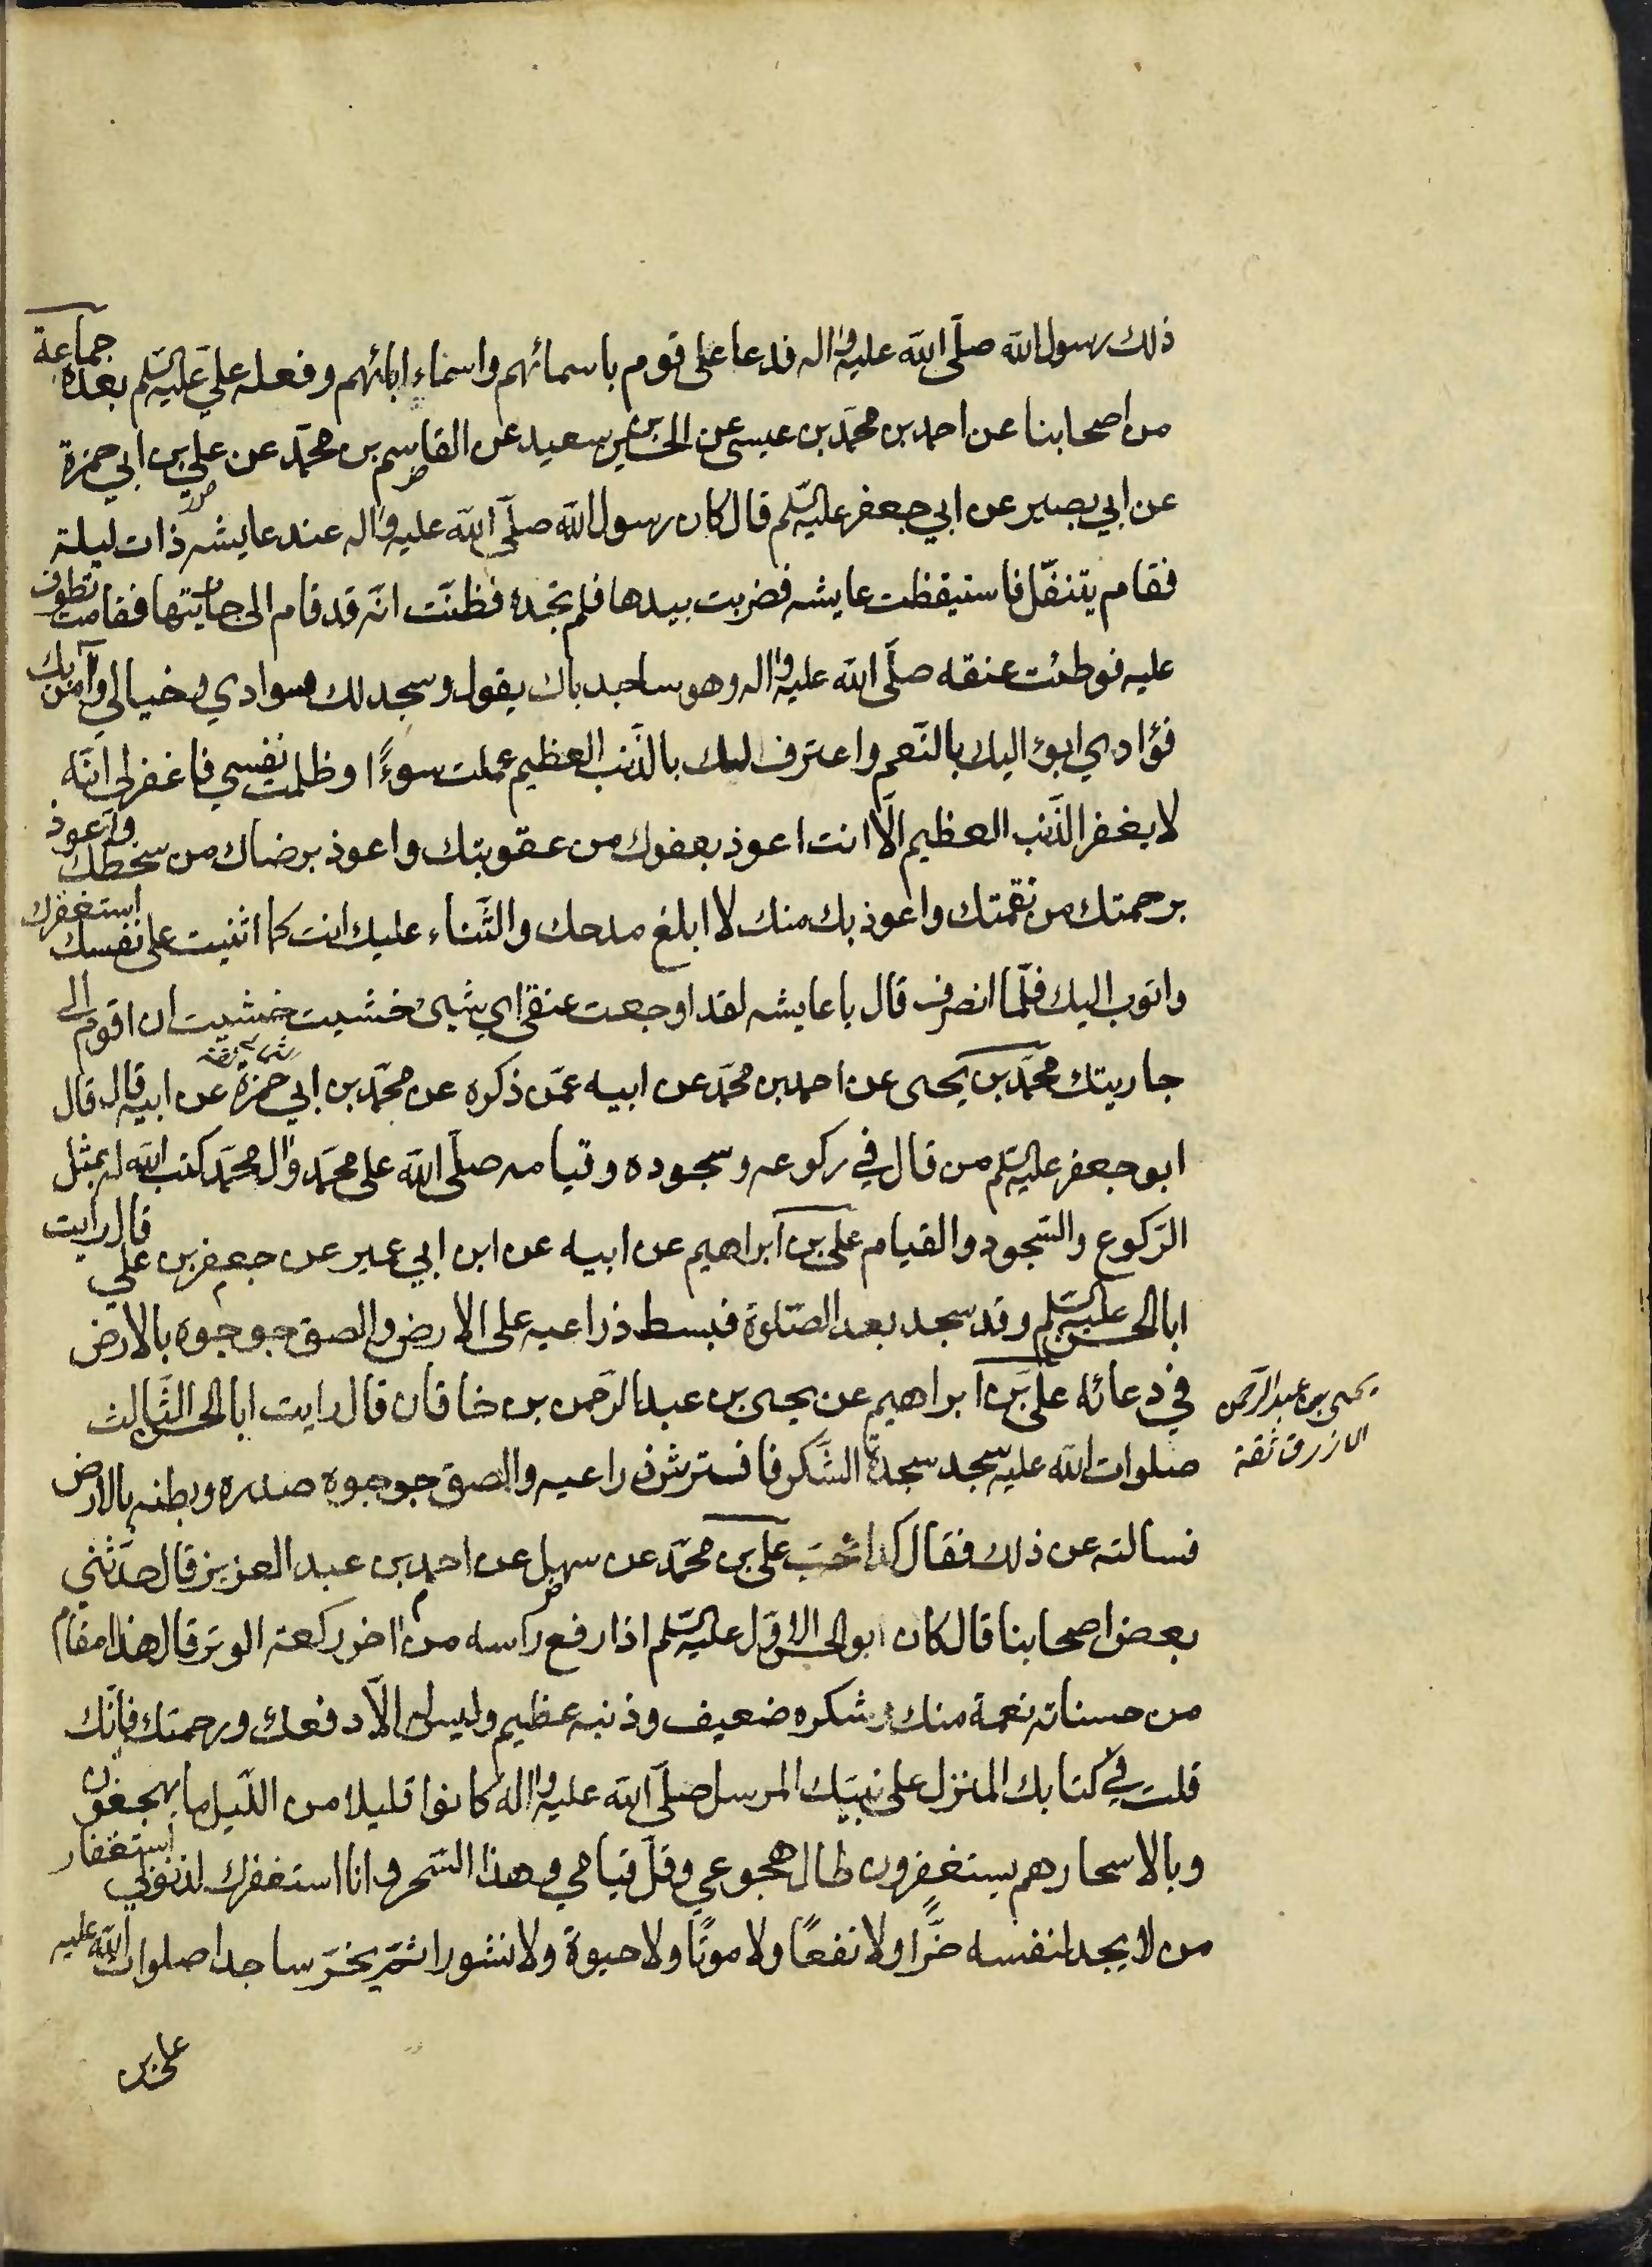 ذلك رسول الله صلّى الله عليه واله فدعا على قوم باسمائهم واسماء ابائهم وفعله عليّ عليه السّلم بعده جماعة
من اصحابنا عن احمد بن محمّد بن عيسى عن الحسين بن سعيد عن القاسم بن محمّد عن علي بن ابي حمزة
عن ابي بصير عن ابي جعفر عليه السّلم قال كان رسول الله صلّى الله عليه واله عند عايشه ذات ليلة
فقام يتنفّل فاستيقظت عايشه فضربت بيدها فلم تجده فظنّت انّه قد قام الى جاريتها فقامت تطوف
عليه فوطئت عنقه صلّى الله عليه واله وهو ساجد باك يقول وسجد لك سوادي وخيالي وآمن بك
فؤادي ابوء اليك بالنّعم واعترف لك بالذّنب العظيم عملت سوءًا وظلمت نفسي فاغفر لي انّه
لا يغفر الذّنب العظيم الّا انت اعوذ بعفوك من عقوبتك واعوذ برضاك من سخطك واعوذ
برحمتك من نقمتك واعوذ بك منك لا ابلغ مدحك والثّناء عليك انت كما اثنيت على نفسك استغفرك
واتوب اليك فلمّا انصرف قال يا عايشه لقد اوجعت عنقي اي شيئ خشيت خشيت ان اقوم الى
جاريتك محمّد بن يحيى عن احمد بن محمّد عن ابيه عمّن ذكره عن محمّد بن ابي حمزة عن ابيه قال قال
ابو جعفر عليه السّلم من قال في ركوعه وسجوده وقيامه صلّى الله على محمّد وال محمّد كتب الله له بمثل
الرّكوع والسّجود والقيام علي بن ابراهيم عن ابيه عن ابن ابي عمير عن جعفر بن علي قال رايت
ابا الحسن عليه السّلم وقد سجد بعد الصّلوة فبسط ذراعيه على الارض والصق جوجوه بالارض
في دعائه علي بن ابراهيم عن يحيى بن عبد الرّحمن بن خاقان قال رايت ابا الحسن الثّالث
يحيى بن عبد الرّحمن
الازرق ثقة
صلوات الله عليه سجد سجدة الشّكر فافترش ذراعيه والصق جوجوه صدره وبطنه بالارض
فسالته عن ذلك فقال كذا تحبّ علي بن محمّد عن سهل عن احمد بن عبد العزيز قال حدّثني
بعض اصحابنا قال كان ابو الحسن الاوّل عليه السّلم اذا رفع راسه من اخر ركعة الوتر قال هذا مقام
من حسناته نعمة منك وشكره ضعيف وذنبه عظيم وليس له الّا دفعك ورحمتك فانّك
قلت في كتابك المنزل على نبيّك المرسل صلّى الله عليه واله كانوا قليلا من اللّيل ما يهجعون
وبالاسحار هم يستغفرون طال هجوعي وقلّ قيامي وهذا السّحر وانا استغفرك لذنوبي استغفار
من لا يجد لنفسه ضرًّا ولا نفعًا ولا موتًا ولا حيوة ولا نشورا ثمّ يخرّ ساجدا صلوات الله عليه
علي بن